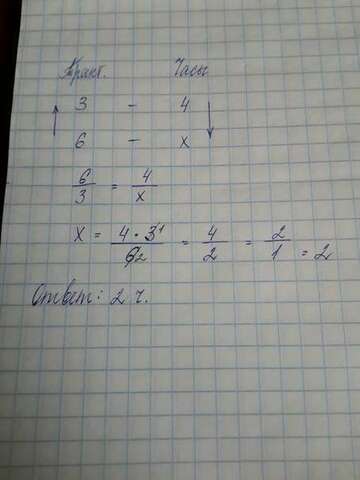 Тракт. Часы
↑ 3 – 4 ↓
6 – x
6/3 = 4/x
X = 4 · 3¹/6₂ = 4/2 = 2/1 = 2
Ответ: 2 ч.